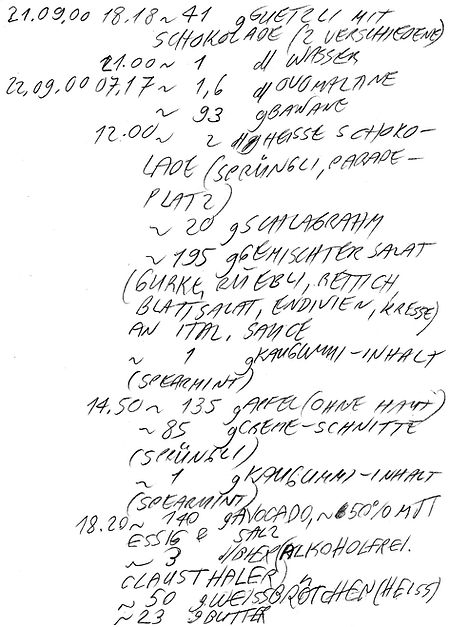 21.09.00 18.18 ~ 41 g GUETZLI MIT
SCHOKOLADE (2 VERSCHIEDENE)
21.00 ~ 1 dl WASSER
22.09.00 07.17 ~ 1,6 dl OVOMALTINE
~ 93 g BANANE
12.00 ~ 2 dl HEISSE SCHOKO-
LADE (SPRÜNGLI, PARADE-
PLATZ)
~ 20 g SCHLAGRAHM
~ 195 g GEMISCHTER SALAT
(GURKE, RÜEBLI, RETTICH,
BLATTSALAT, ENDIVIEN, KRESSE)
AN ITAL. SAUCE
~ 1 g KAUGUMMI-INHALT
(SPEARMINT)
14.50 ~ 135 g APFEL (OHNE HAUT)
~ 85 g CREME-SCHNITTE
(SPRÜNGLI)
~ 1 g KAUGUMMI-INHALT
(SPEARMINT)
18.20 ~ 140 g AVOCADO, ~ 50% MIT
ESSIG & SALZ
~ 3 dl BIER (ALKOHOLFREI.
CLAUSTHALER)
~ 50 g WEISSBRÖTCHEN (HEISS)
~ 23 g BUTTER